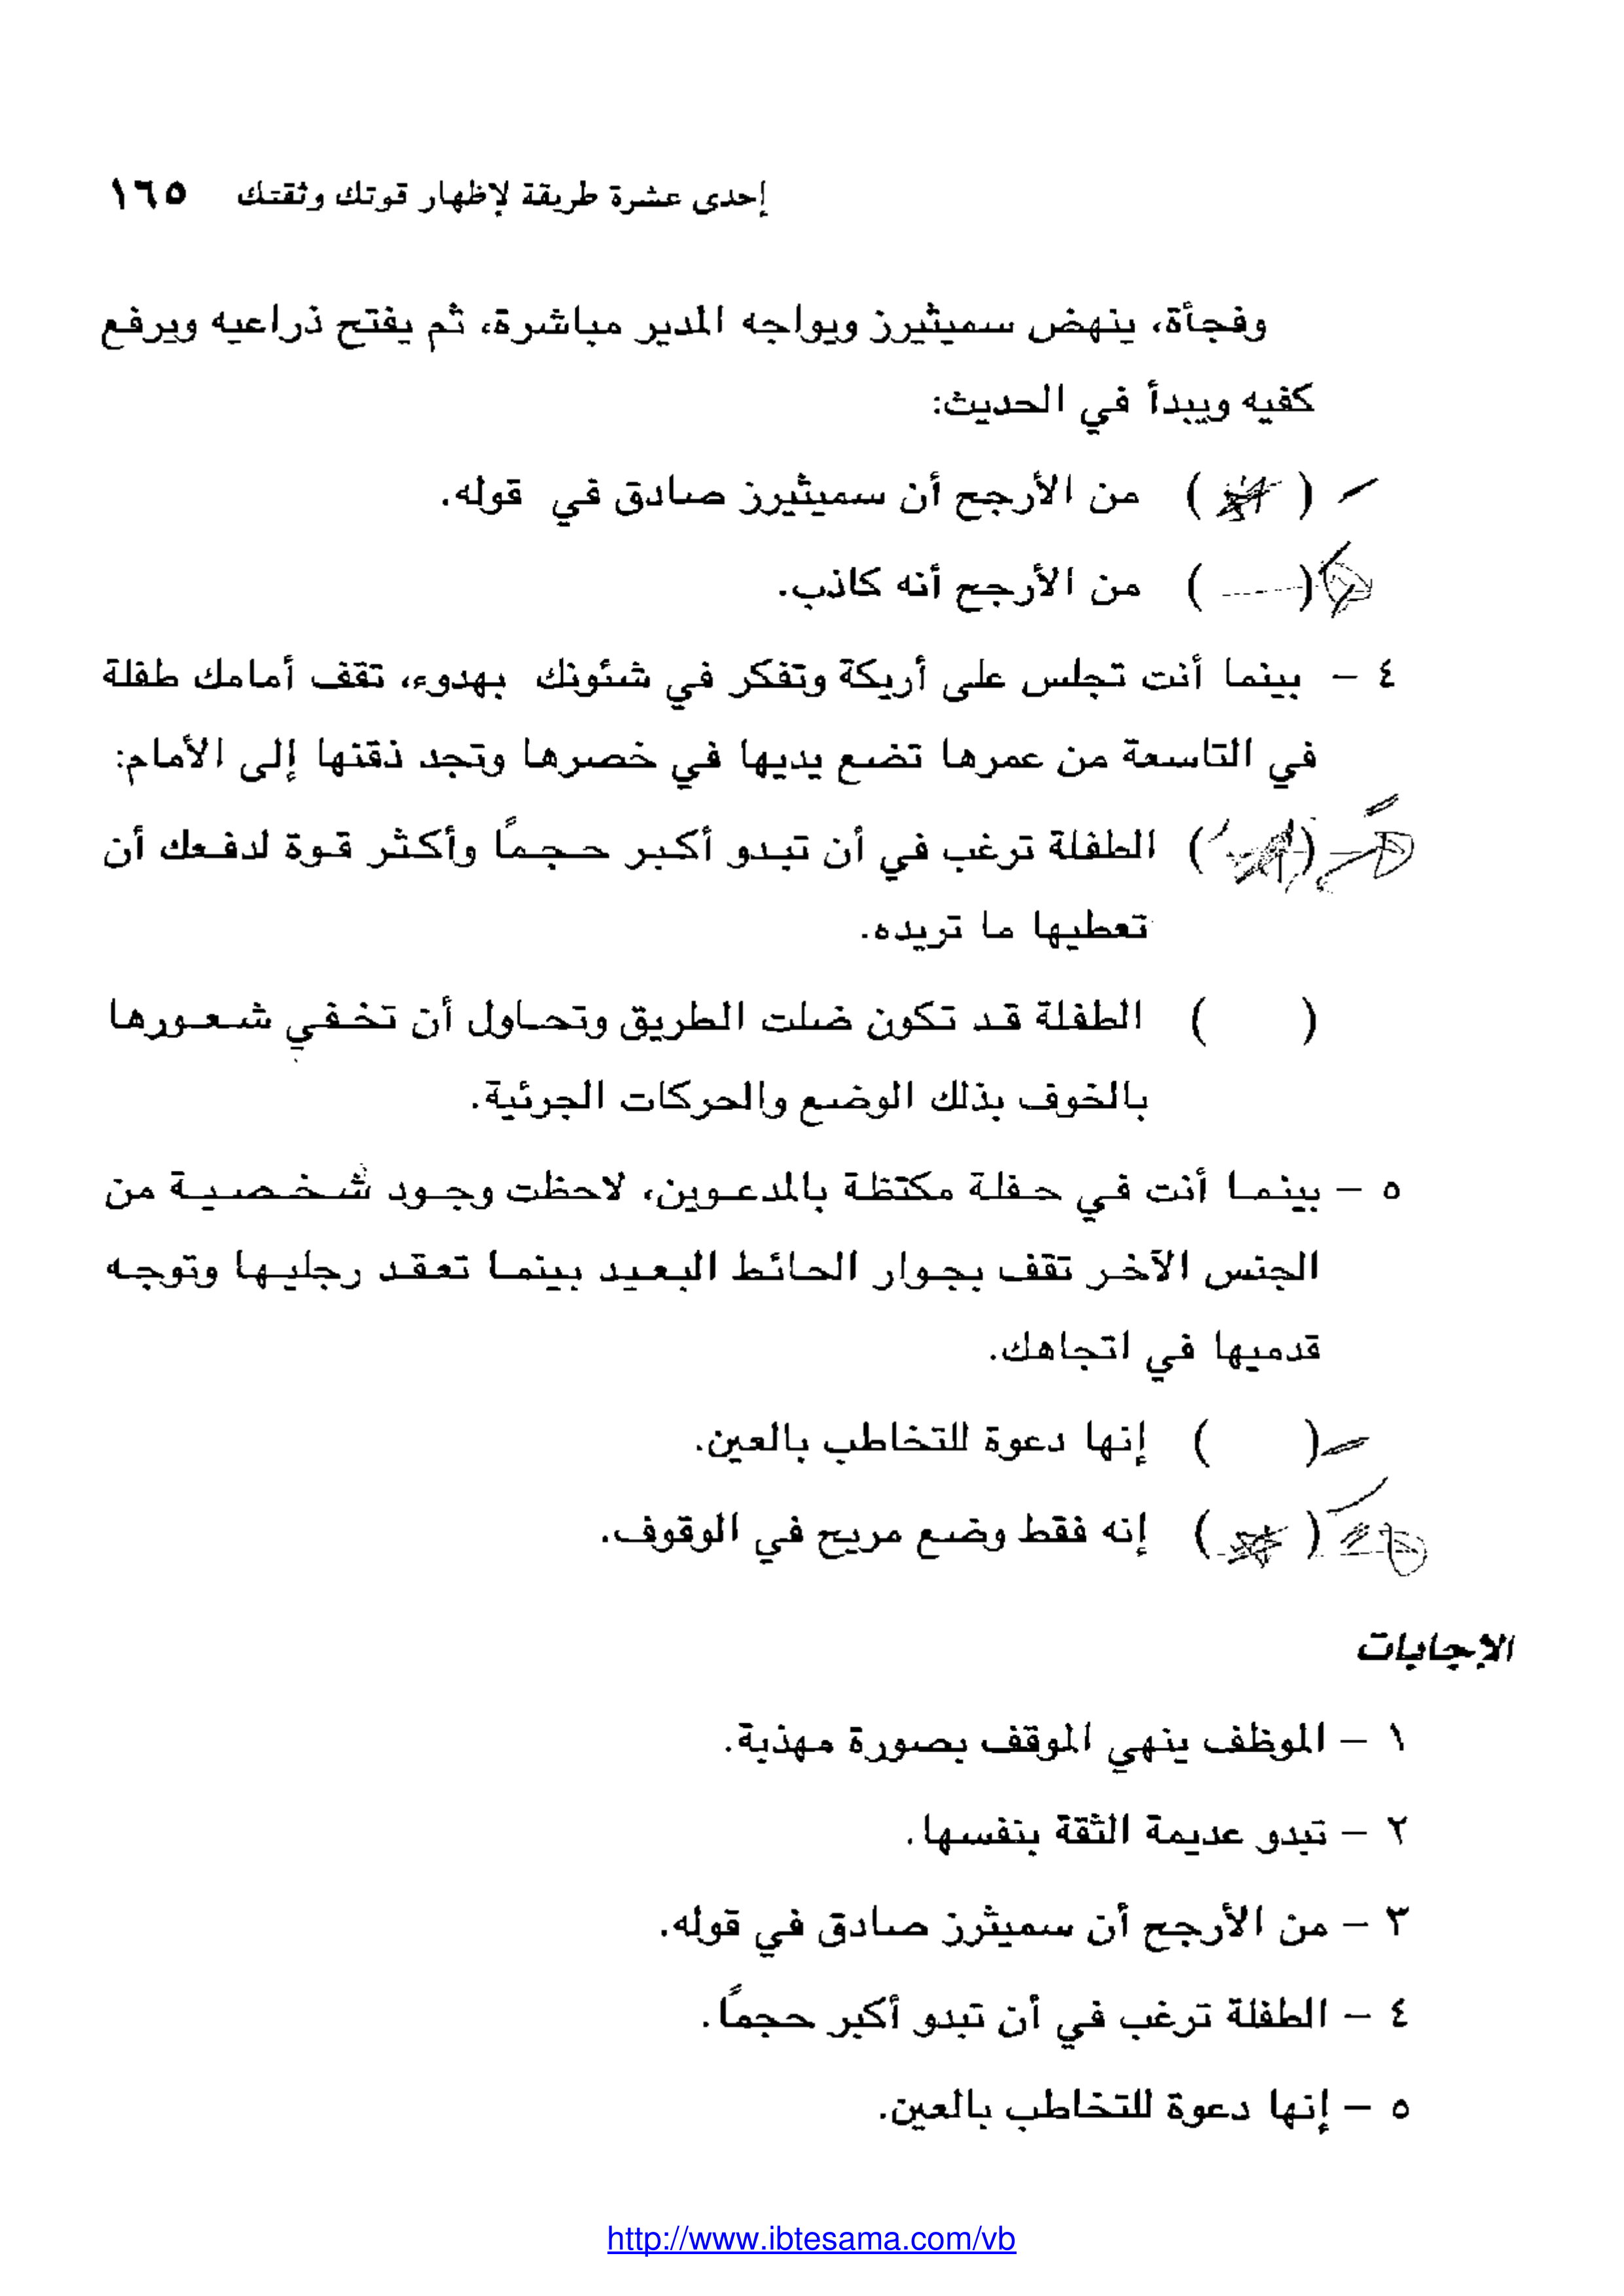 إحدى عشرة طريقة لإظهار قوتك وثقتك ١٦٥
وفجأة، ينهض سميثيرز ويواجه المدير مباشرة، ثم يفتح ذراعيه ويرفع
كفيه ويبدأ في الحديث:
( ) من الأرجح أن سميثيرز صادق في قوله.
( ) من الأرجح أنه كاذب.
٤ – بينما أنت تجلس على أريكة وتفكر في شئونك بهدوء، تقف أمامك طفلة
في التاسعة من عمرها تضع يديها في خصرها وتجد ذقنها إلى الأمام:
( ) الطفلة ترغب في أن تبدو أكبر حجماً وأكثر قوة لدفعك أن
تعطيها ما تريده.
( ) الطفلة قد تكون ضلت الطريق وتحاول أن تخفي شعورها
بالخوف بذلك الوضع والحركات الجرئية.
٥ – بينما أنت في حفلة مكتظة بالمدعوين، لاحظت وجود شخصية من
الجنس الآخر تقف بجوار الحائط البعيد بينما تعقد رجليها وتوجه
قدميها في اتجاهك.
( ) إنها دعوة للتخاطب بالعين.
( ) إنه فقط وضع مريح في الوقوف.
الإجابات
١ – الموظف ينهي الموقف بصورة مهذبة.
٢ – تبدو عديمة الثقة بنفسها.
٣ – من الأرجح أن سميثرز صادق في قوله.
٤ – الطفلة ترغب في أن تبدو أكبر حجماً.
٥ – إنها دعوة للتخاطب بالعين.
http://www.ibtesama.com/vb